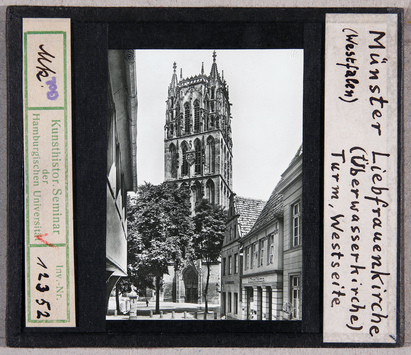 Mk.
Kunsthistor. Seminar
der
Hamburgischen Universität
Inv.-Nr.
12352
Münster Liebfrauenkirche
(Westfalen) (Überwasserkirche)
Turm, Westseite